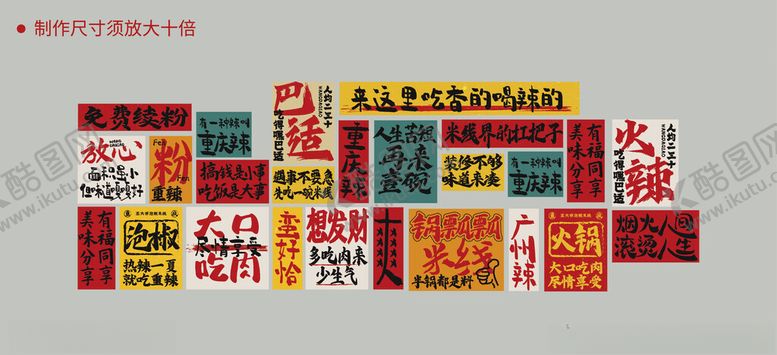 制作尺寸须放大十倍
免费续粉
放心
面积虽小
但味道要好
Fen
粉
Fen
重辣
有一种辣叫
重庆辣
搞钱是小事
吃饭是大事
巴适
吃得嘴巴适
人均二三十
遇事不要急
先吃一碗米线
来这里吃香的喝辣的
重庆辣
人生苦短
再来一碗
米线界的扛把子
装修不够
味道来凑
有一种辣叫
重庆辣
有福同享
美味分享
火辣
吃得嘴巴适
人均二三十
有福同享
美味分享
泡椒
热辣一夏
就吃重辣
大口吃肉
尽情享受
蛮好恰
想发财
多吃肉来
少生气
锅瓢瓢
米线
半锅都是料
广州辣
火锅
大口吃肉
尽情享受
烟火人间
滚烫人生
酷图网
www.ikutu.com